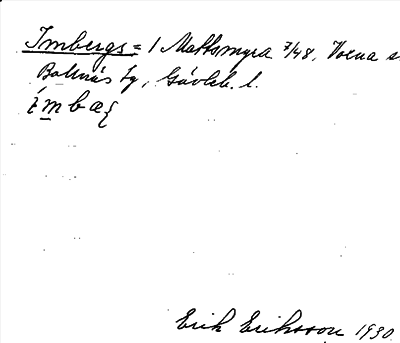 Imbergs = 1 Mattsmyra 7/48, Voxna s
Bollnäs tg, Gävleb. l.
ímbæ{
Erik Eriksson 1930